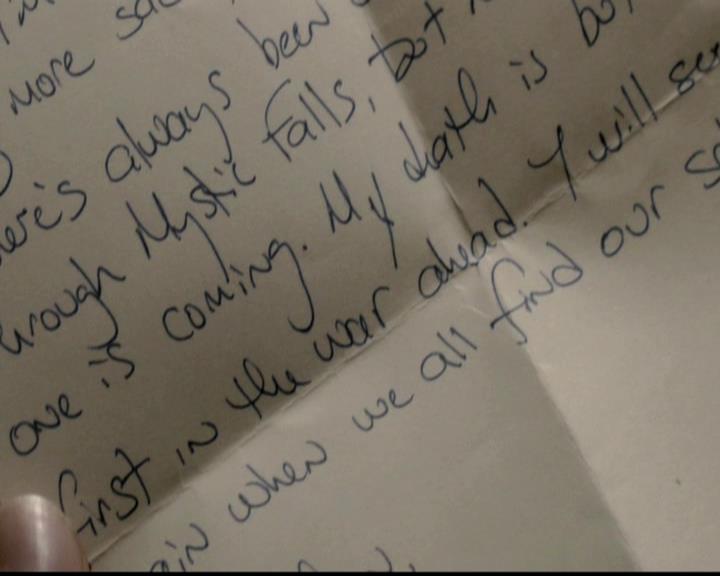 more
there's always been
through Mystic Falls, but
one is coming. My death is but
first in the war ahead. I will see
when we all find our